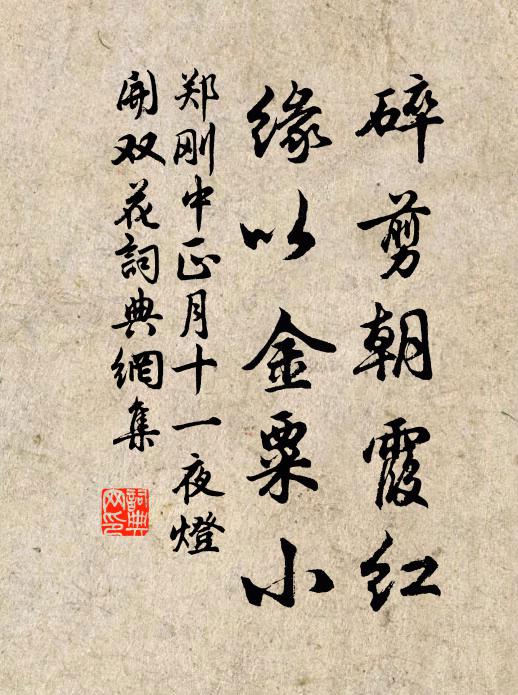 碎剪朝霞红
缘以金粟小
郑刚中正月十一夜燈
開双花詞典網集
詞典网印